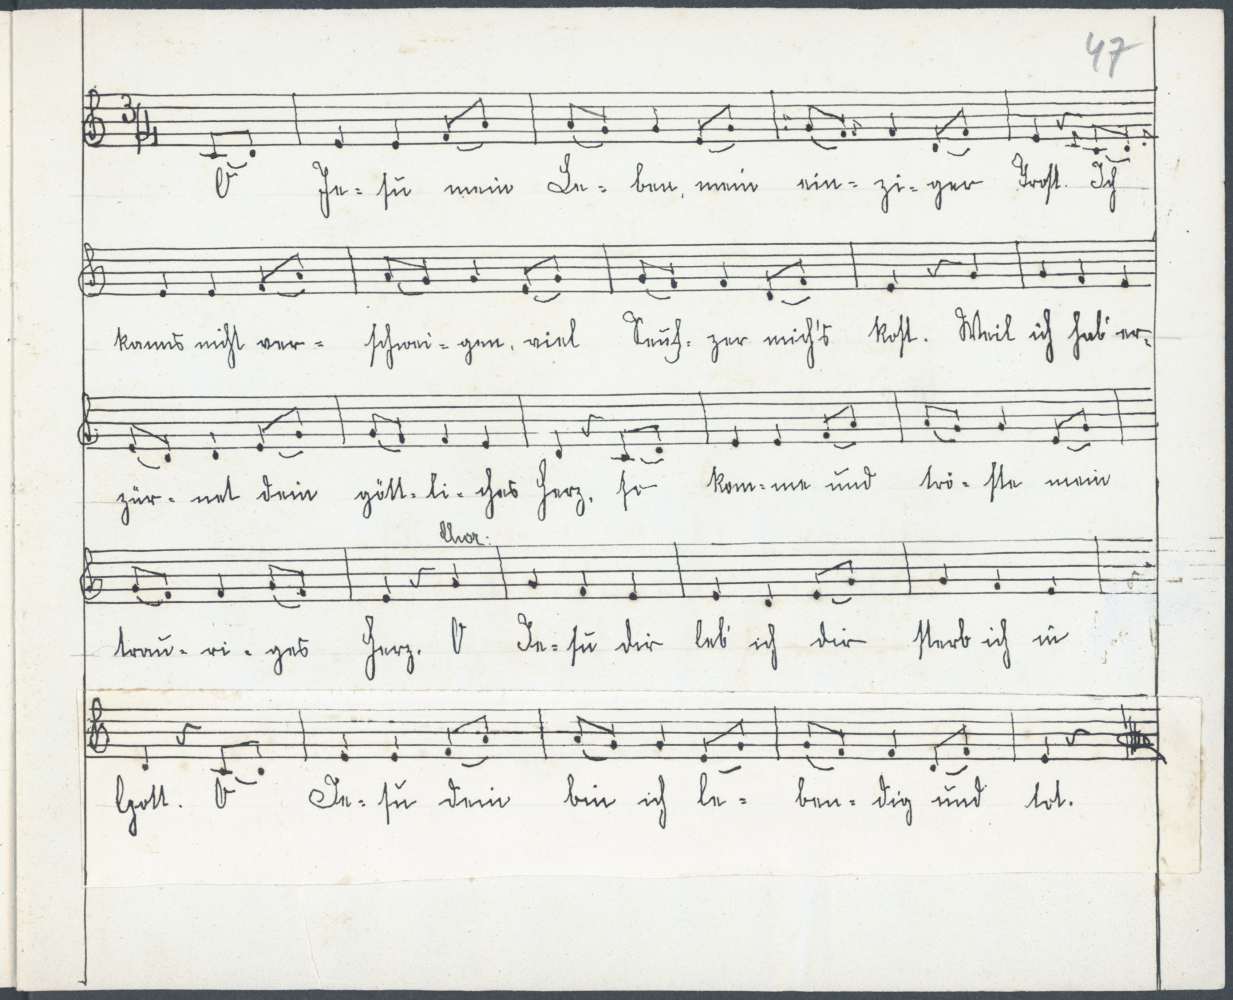 47
3/4
O Je - su mein Le - ben, mein ein - zi - ger Trost. Ich
kanns nicht ver - schwei - gen, viel Seuf - zer mich's kost. Weil ich hab' er -
zür - net dein gött - li - ches Herz, so kom - me und trö - ste mein
Chor:
trau - ri - ges Herz. O Je - su dir leb' ich dir sterb ich in
Gott. O Je - su dein bin ich le - ben - dig und tot.